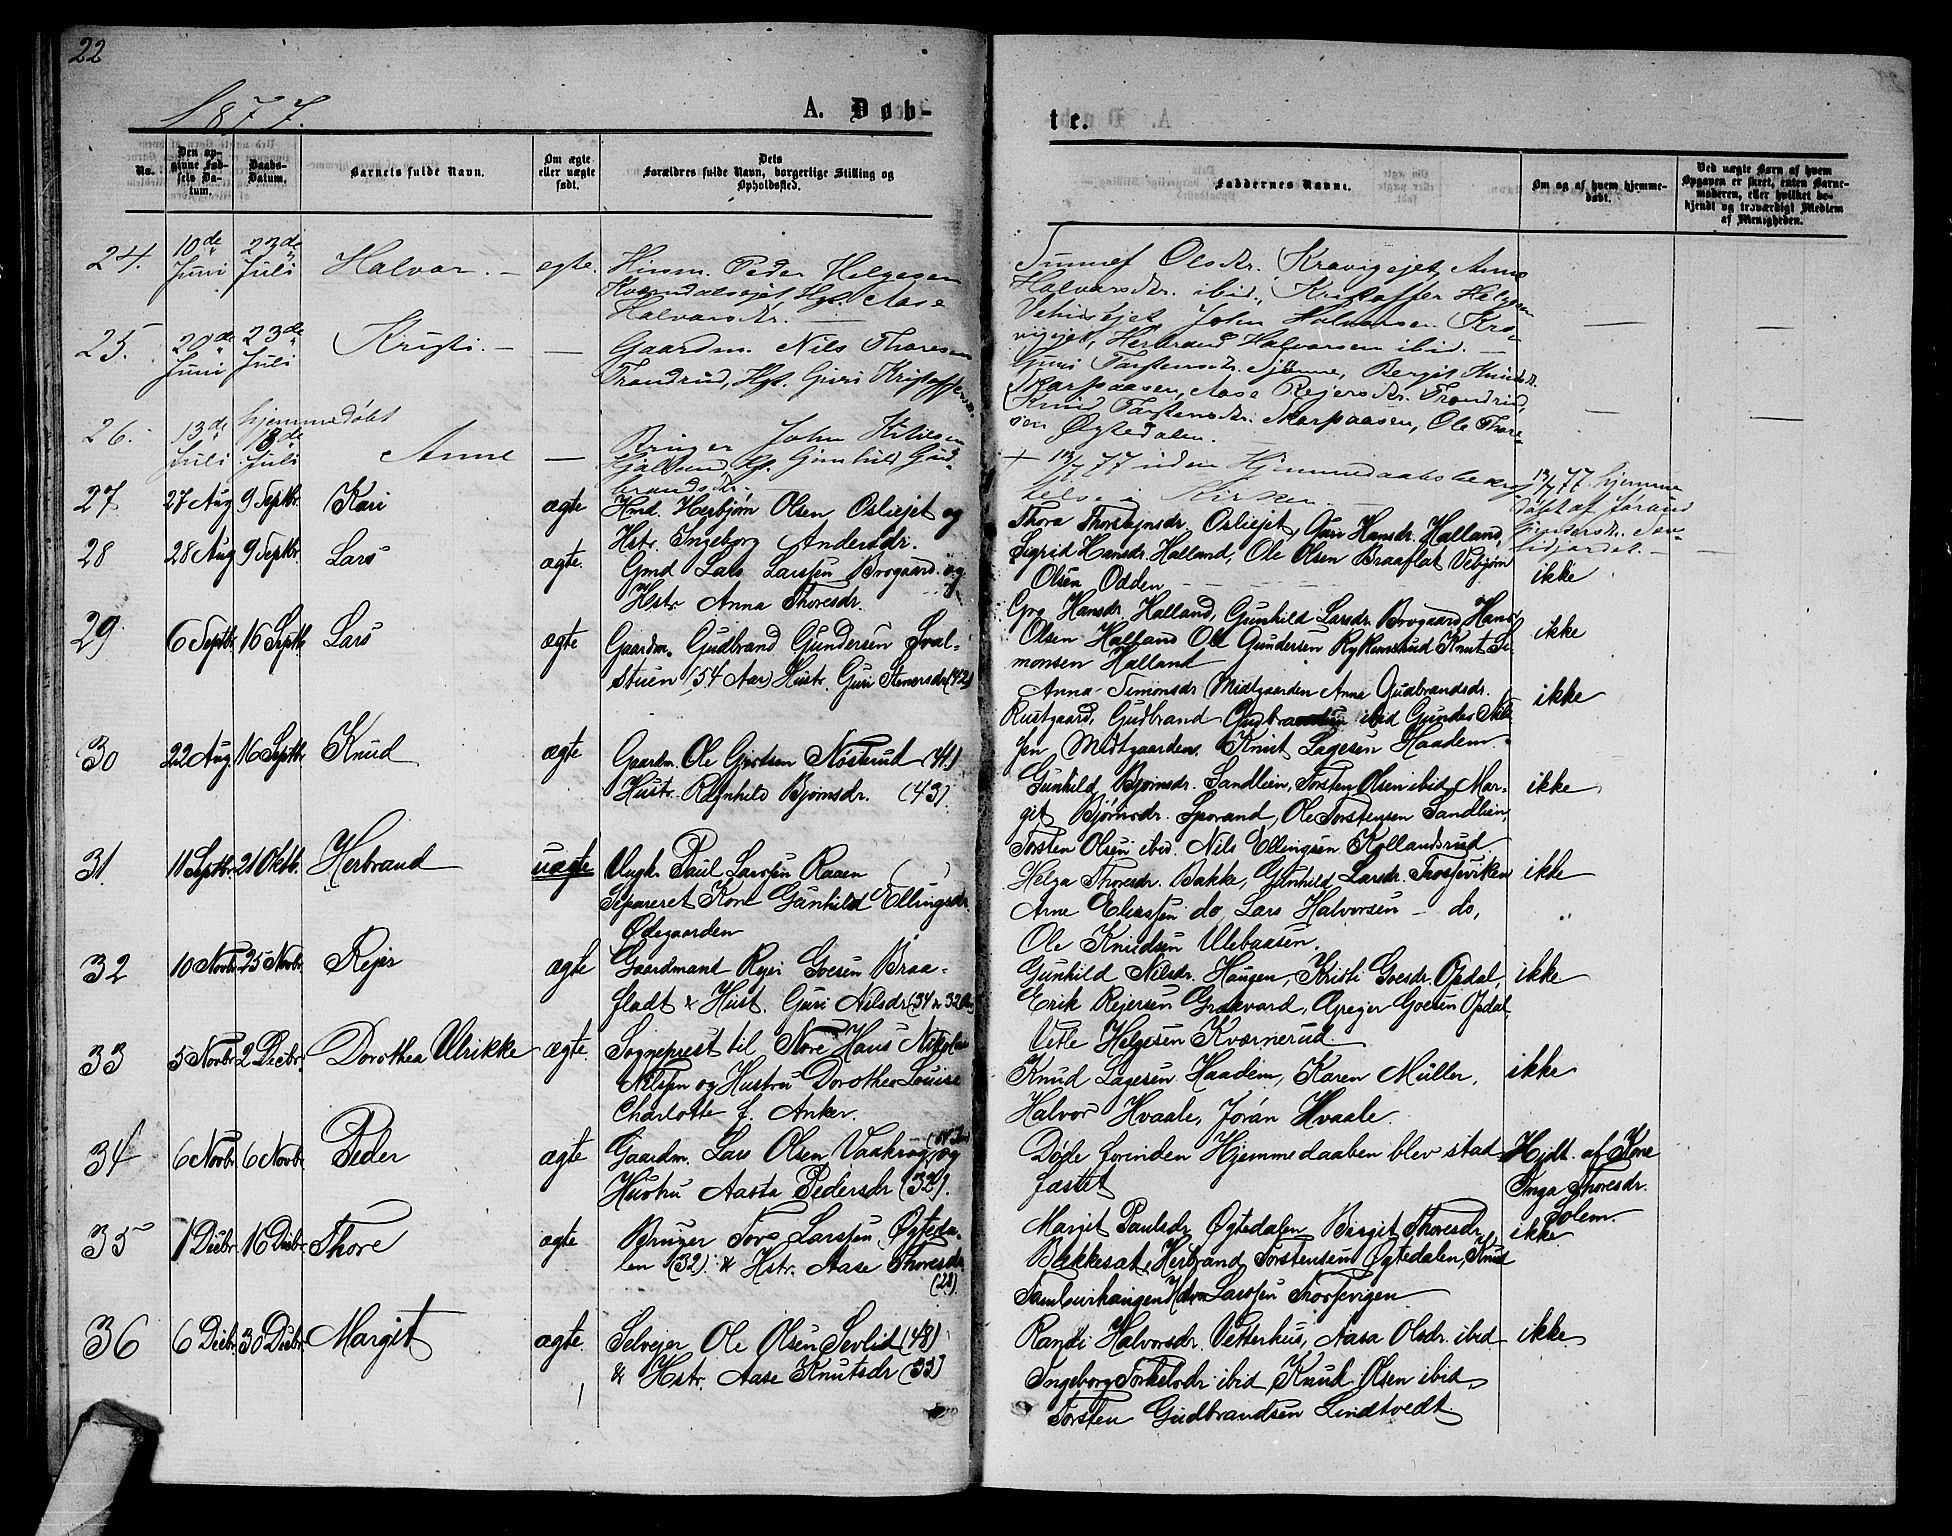 22
1877.
A. Døb-
te.
No.
Den op-
givne Fød-
sels Da-
tum.
Daabs-
Datum.
Barnets fulde Navn.
Om ægte
eller uægte
født.
Dets
Forældres fulde Navn, borgerlige Stilling og
Opholdssted.
Faddernes Navne.
Om og af hvem hjemme-
døbt.
Ved uægte Børn af hvem
Opgaven er skeet, enten Barne-
moderen, eller hvilket be-
kjendt og troværdigt Medlem
af Menigheden.
24.
10de Juni
23de Juli
Halvor. —
ægte.
Husm. Peder Helgesen
Kværndalsejet, Hst. Aase
Halvorsdtr.
Olsdtr. Kravigejet, Anne
Halvorsdtr. ibid., Kristoffer Helgesen
John Halvorsen Kra-
vigejet, Herbrand Halvorsen ibid. —
25.
Juni
23de Juli
Kristi. —
—
Gaardm. Nils Thoresen
Trondrud, Hst. Guri Kristoffersd.
Guri Torstensdtr. Bergit Knudsdtr.
Skarpaasen, Aase Rejersdtr. Trondrud,
Knud Skarpaasen, Ole Thore-
sen Øgtedalen.
26.
13de Juli
hjemmedøbt
13de Juli
Anne
—
Bruger John Kittilsen
Hst. Gunhild Gud-
brandsdtr.
+ 13/7 77 uden Hjemmedaabsbekræf-
telse i Kirken
13/7 77 hjemme
døbt af Jørand
27
27 Aug
9 Septbr.
Kari
ægte
Hmd. Herbjørn Olsen Osliejet og
Hstr. Ingeborg Andersdr.
Thora Thorstejnsdr. Osliejet, Guri Hansdr. Halland,
Sigrid Hansdr. Halland, Ole Olsen Braaflat Vebjørn
Olsen Odden
ikke
28
28 Aug
9 Septbr.
Lars
ægte.
Gmd Lars Larssen Brogaard og
Hstr Anna Thoresdr.
Gro Hansdr. Halland, Gunhild Larsdr. Brogaard, Hans
Olsen Halland Ole Gundersen Rykkensrud Knut Si-
monsen Halland
ikke
29
6 Septbr
16 Septb
Lars
ægte
Gaardm. Gudbrand Gundersen Sval-
stuen (54 Aar) Hustr. Guri Stenersdr (42)
Anna Simonsdr Midtgaarden Anne Gudbrandsdr.
Rustgaard, Gudbrand Gudbrandsen ibid Gunder Nils-
sen, Midtgaarden. Knut Lagesen Haadem.
ikke
30
22 Aug.
16 Septb.
Knud
ægte
Gaardm. Ole Gjertsen Nøsterud (41)
Hustr. Ragnhild Bjørnsdr. (43).
Gunhild Bjørnsdr. Sandlien, Torsten Olsen ibid Mar-
git Bjørnsdr. Sporand, Ole Torstensen Sandlien,
Torsten Olsen ibid. Nils Ellingsen Kollandsrud
ikke
31.
11 Septbr.
21 Oktb.
Herbrand
uægte
Ungk. Paul Larssen Raaen ( )
Separeret Kone Gunhild Ellingsdr.
Ødegaarden
Helga Thoresdr. Bakke, Gunhild Larsdr. Trosseviken
Arne Eliassen do, Lars Halvorsen — do,
Ole Knudsen Ulebaasen.
ikke
"
32
10 Novbr
25 Novbr.
Rejer
ægte
Gaardmand Rejer Goesen Braa-
fladt & Hust. Guri Nilsdr (34 & 32 Aar)
Gunhild Nilsdr. Haugen, Kristi Goesdr. Opdal,
Erik Rejersen Grøkvard, Greger Goesen Opdal
Vetle Helgesen Kværnerud.
ikke
33
5 Novbr
2 Decbr.
Dorothea Ulrikke
ægte.
Sogneprest til Nore Hans Nikolai
Nilssen og Hustru Dorothea Louise
Charlotte f. Anker.
Knud Lagesen Haadem, Karen Müller,
Halvor Hvaale, Jørån Hvaale.
ikke
34
6 Novbr
6 Novbr.
Peder
ægte
Gaardm. Lars Olsen Vaakrag og
Hustru Aasta Pedersdr (32).
Døde forinden Hjemmedaaben blev stad-
fæstet
Hjdt. af Kone
Inga Thoresdr.
Solem.
35
1 Decbr
16 Decbr.
Thore
ægte
Bruger Tore Larssen, Øgteda-
len (32) & Hstr. Aase Thoresdr.
(28)
Margit Paulsdr Øgtedalen Birgit Thoresdr.
Bekkesat, Herbrand Torstensrud Øgtedalen, Knud
Tamburhaugen Halvor Larssen Trossevigen
ikke
36
6 Decbr.
30 Decbr
Margit
ægte.
Selvejer Ole Olsen Sevlid (48)
& Hstr. Aase Knutsdr (33)
Randi Halvorsdr. Vetterhus, Aasa Olsdr. ibid
Ingeborg Torkelsdr ibid, Knud Olsen ibid,
Torsten Gudbrandsen Lindtvedt.
ikke.